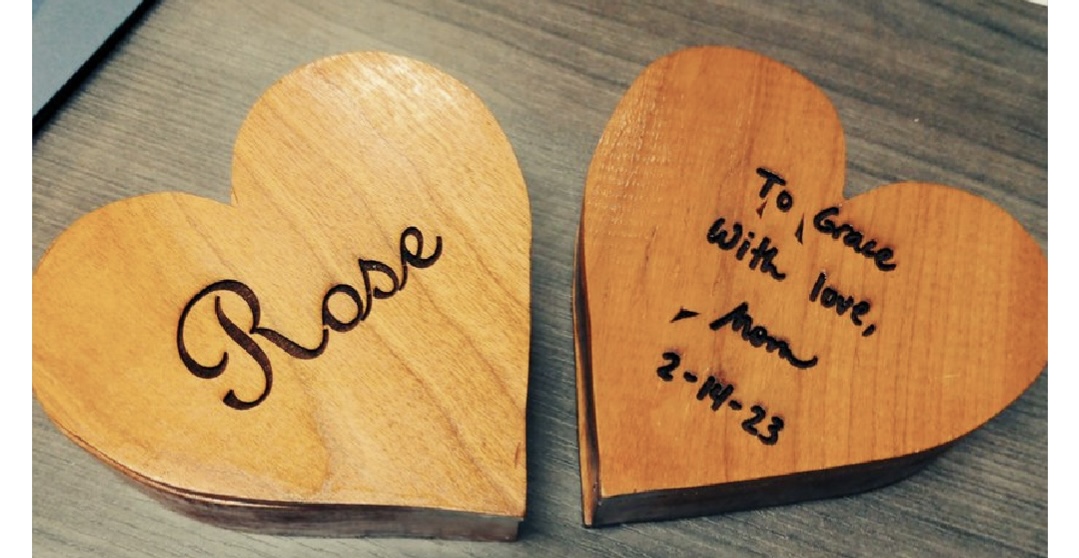 Rose
To Grace
With love,
Mom
2-14-23